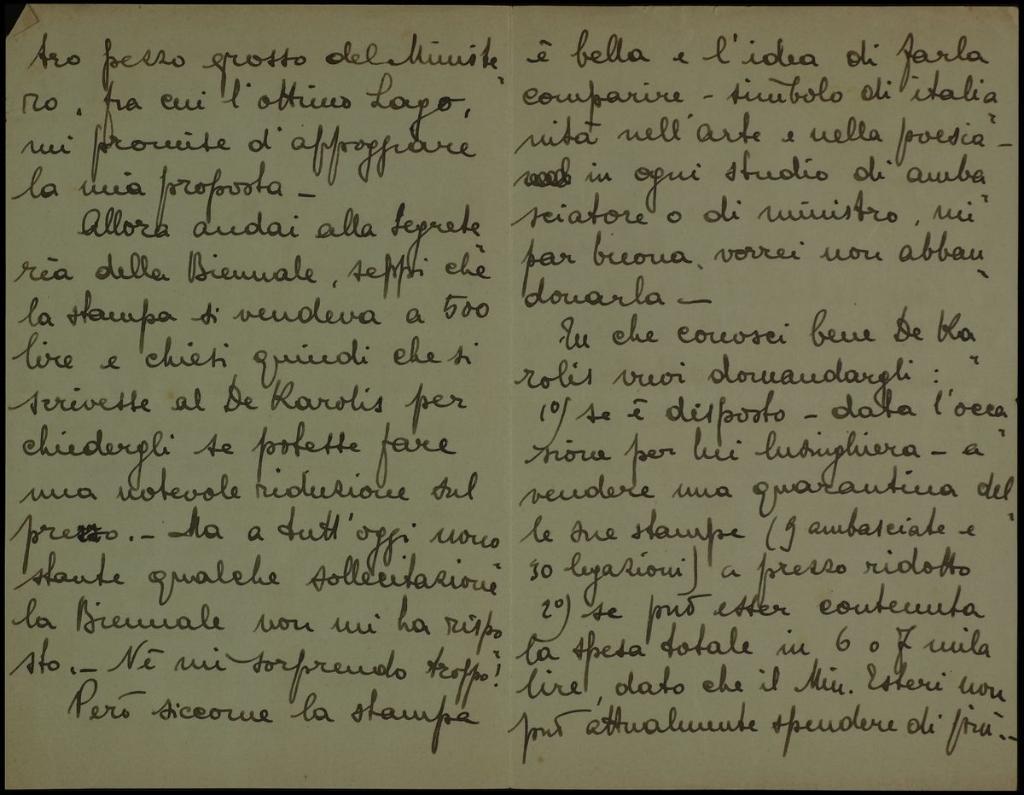 tro pezzo grosso del Ministe"
ro, fra cui l'ottimo Lago,
mi promise d'appoggiare
la mia proposta -
Allora andai alla Segrete"
ria della Biennale, seppi che
la stampa si vendeva a 500
lire e chiesi quindi che si
scrivesse al De Karolis per
chiedergli se potesse fare
una notevole riduzione sul
prezzo. - Ma a tutt'oggi nono
stante qualche sollecitazione
la Biennale non mi ha rispo"
sto. - Nè mi sorprendo troppo!
Però siccome la stampa
è bella e l'idea di farla
comparire - simbolo di italia"
nità nell'arte e nella poesia -
in ogni studio di amba"
sciatore o di ministro, mi
par buona, vorrei non abban"
donarla -
Tu che conosci bene De Ka"
rolis vuoi domandargli :
1º) se è disposto - data l'occa"
sione per lui lusinghiera - a
vendere una quarantina del"
le sue stampe (9 ambasciate e
30 legazioni) a prezzo ridotto
2º) se può esser contenuta
la spesa totale in 6 o 7 mila
lire, dato che il Min. Esteri non
può attualmente spendere di più. -